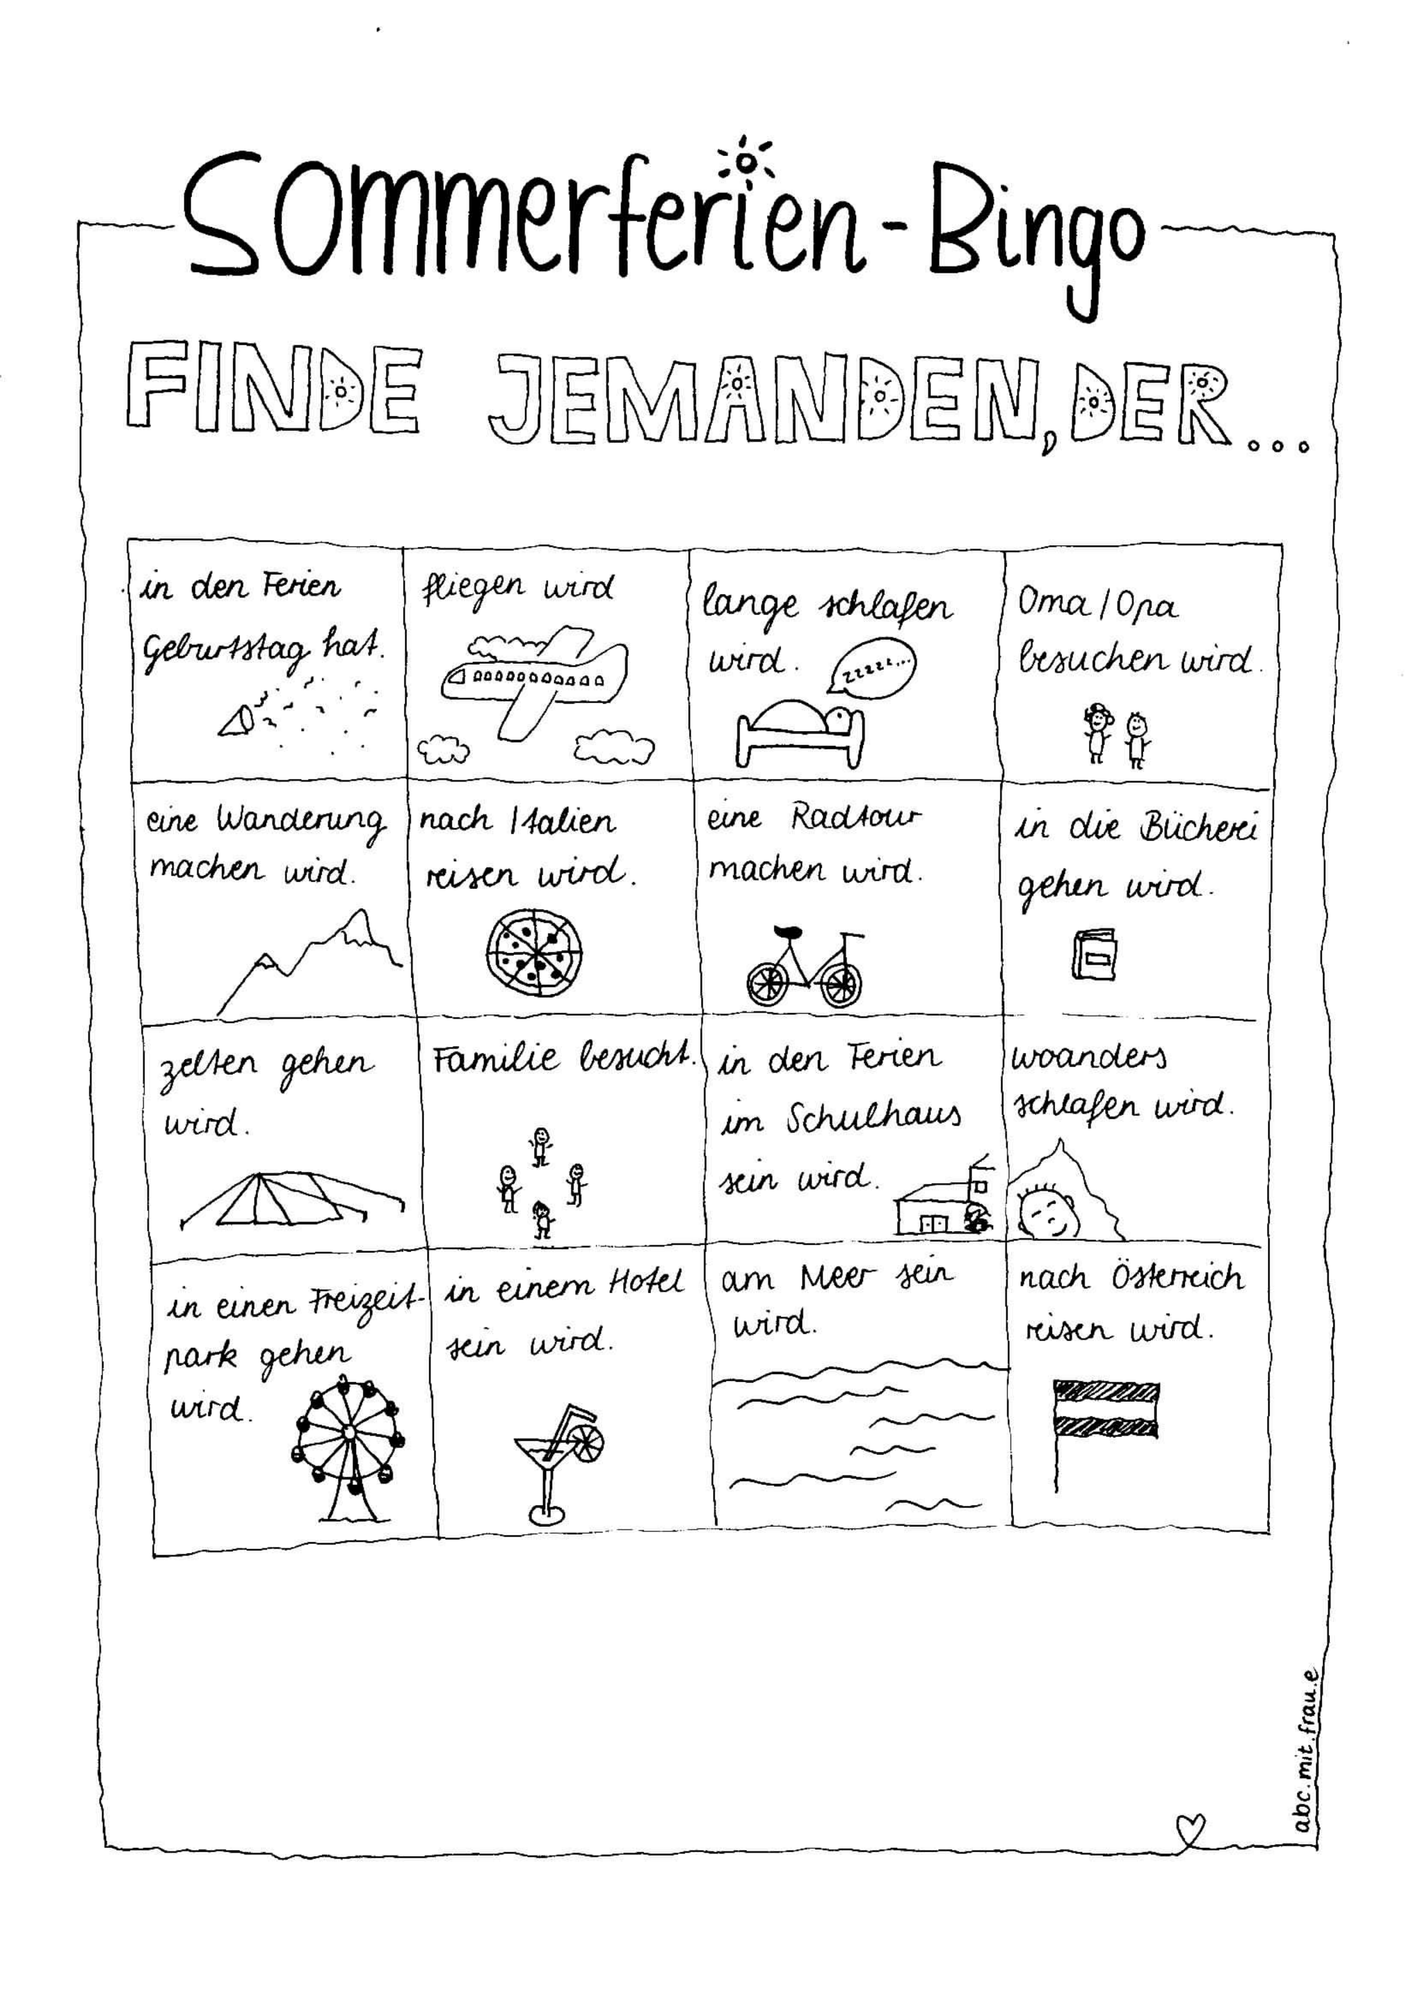 Sommerferien-Bingo
FINDE JEMANDEN, DER...
in den Ferien
Geburtstag hat.
fliegen wird
lange schlafen
wird.
zzzzz...
Oma/Opa
besuchen wird.
eine Wanderung
machen wird.
nach Italien
reisen wird.
eine Radtour
machen wird.
in die Bücherei
gehen wird.
zelten gehen
wird.
Familie besucht.
in den Ferien
im Schulhaus
sein wird.
woanders
schlafen wird.
in einen Freizeit-
park gehen
wird.
in einem Hotel
sein wird.
am Meer sein
wird.
nach Österreich
reisen wird.
abc.mit.frau.e